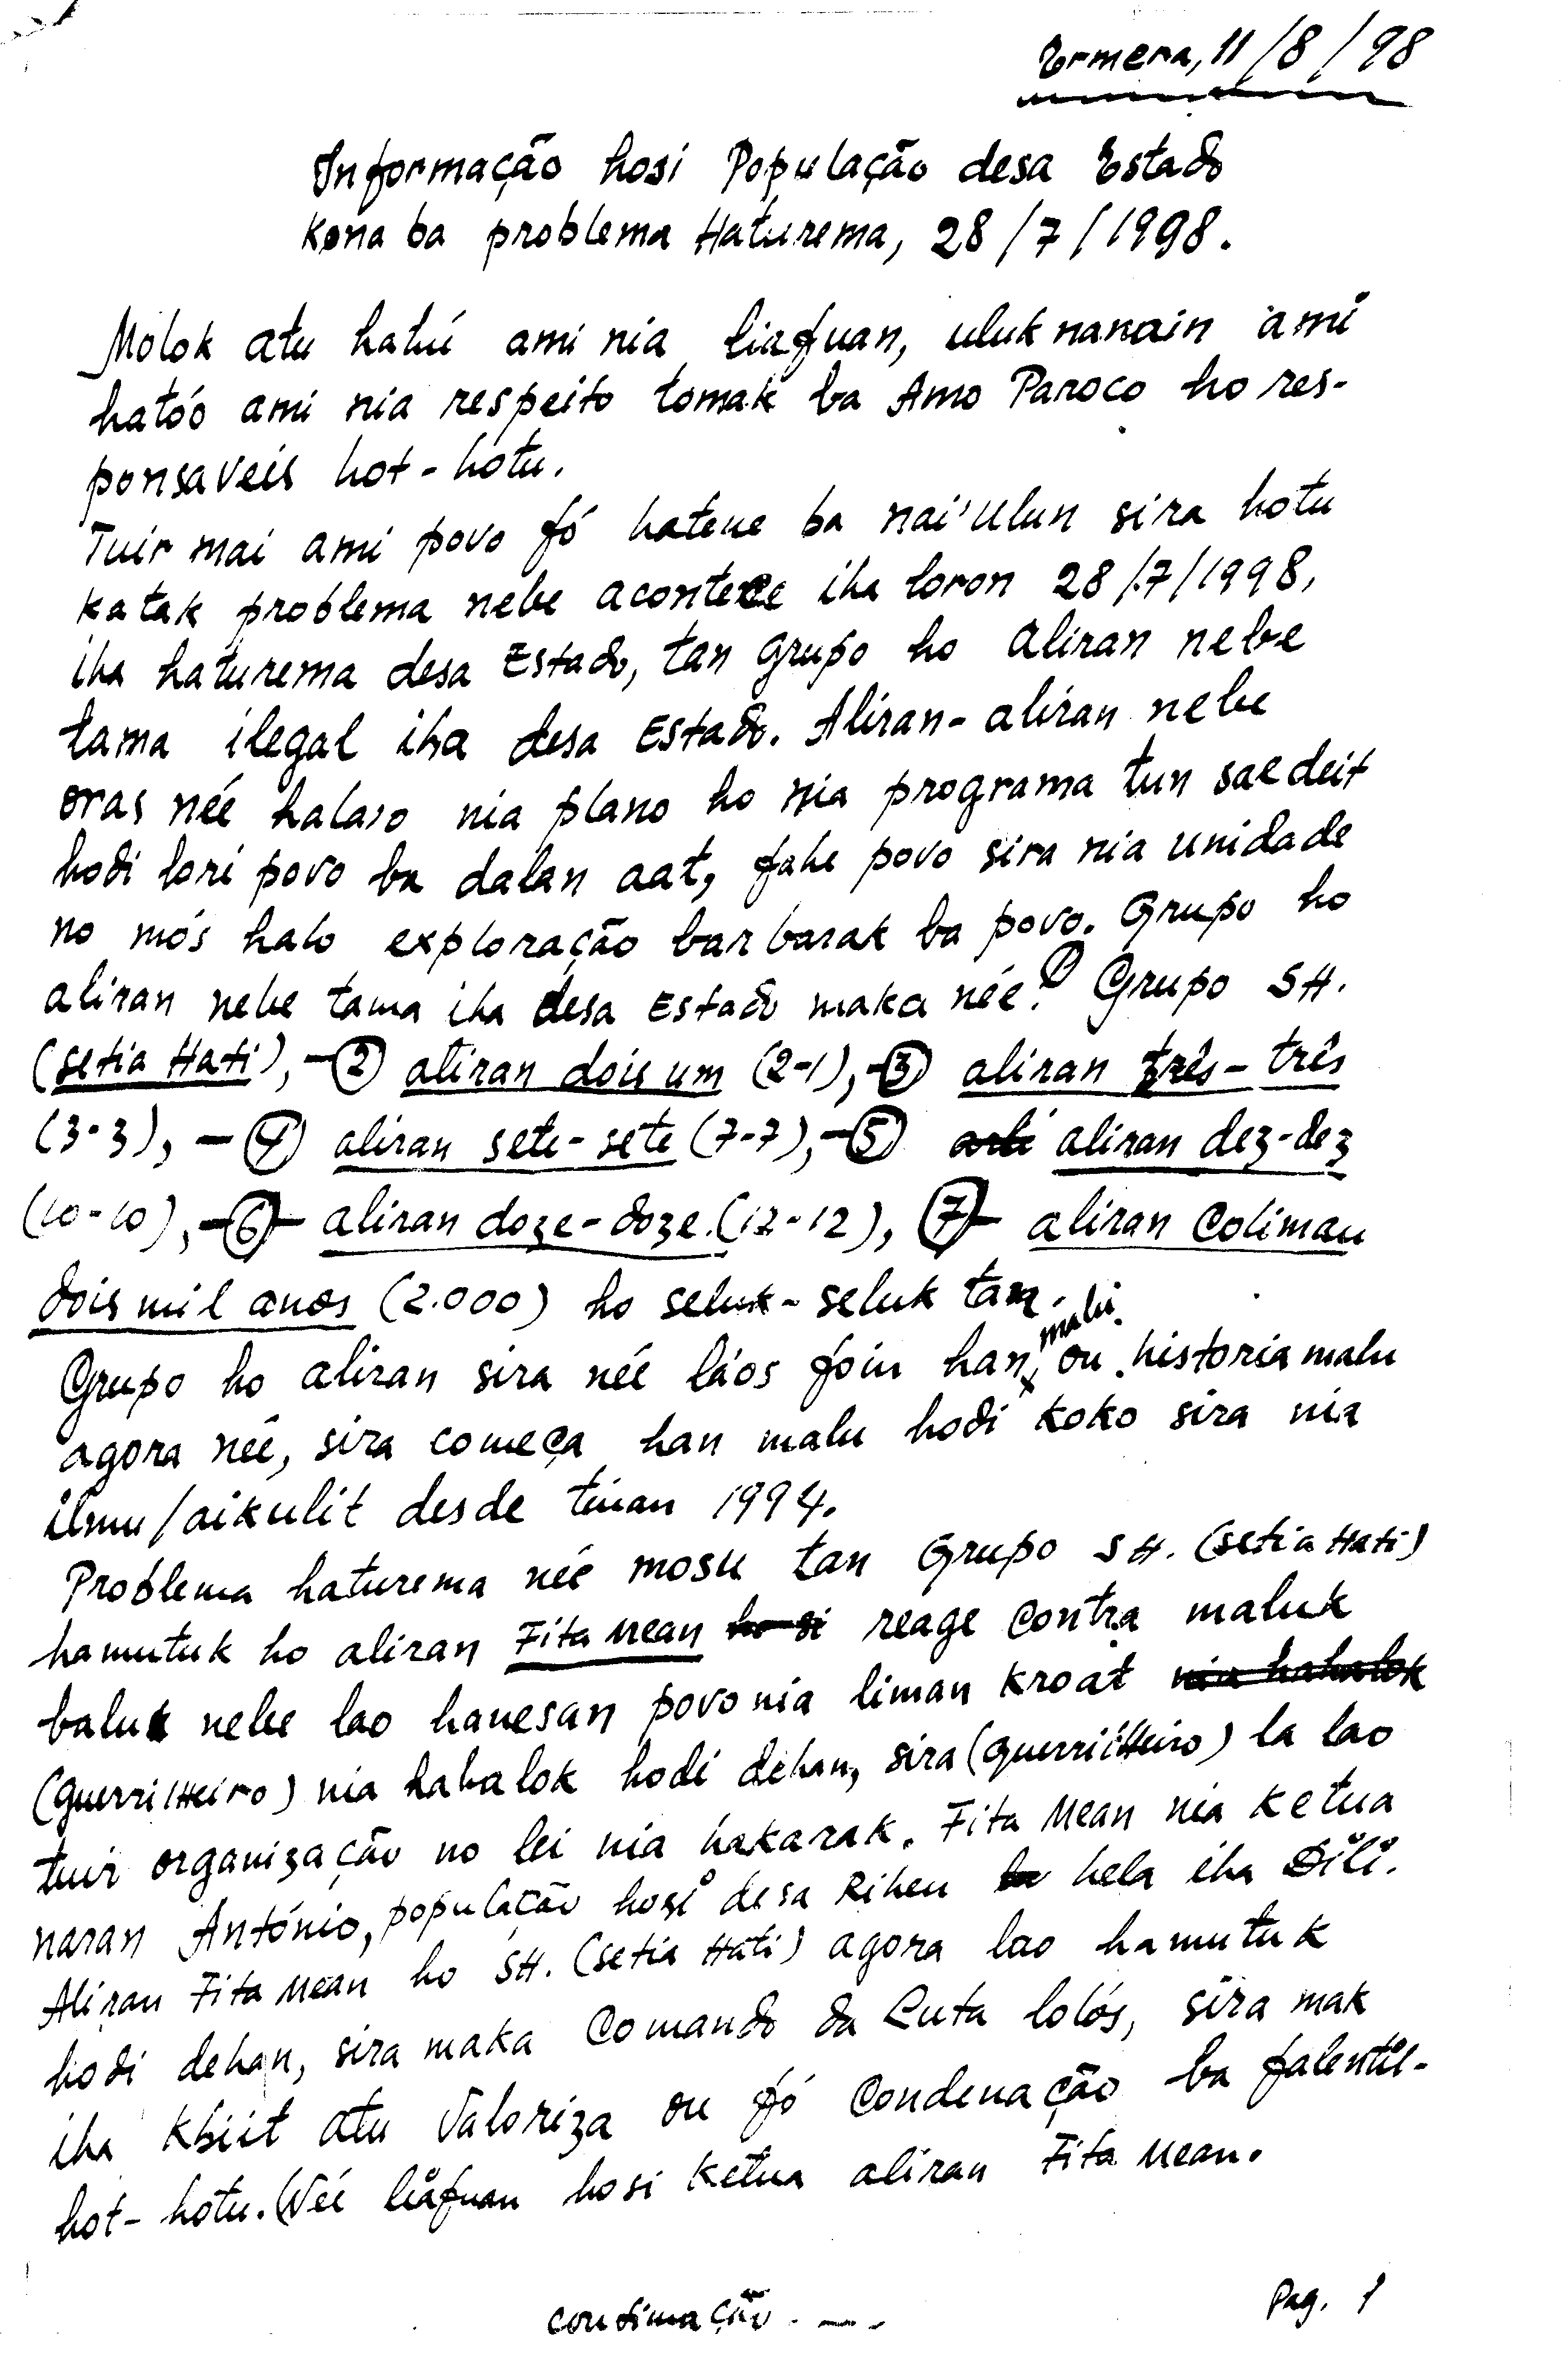 Ermera, 11/8/98
Informação hosi População desa Estado
Kona ba problema Haturema, 28/7/1998.
Molok atu hatúi ami nia liafuan, uluk nanain ami
hatóo ami nia respeito tomak ba Amo Paroco ho res-
ponsaveis hot-hotu.
Tuir mai ami povo fó hatene ba nai'ulun sira hotu
katak problema nebe acontece iha loron 28/7/1998,
iha haturema desa Estado, tan grupo ho aliran nebe
tama ilegal iha desa Estado. Aliran-aliran nebe
oras néé halaio nia plano ho nia programa tun sae deit
hodi lori povo ba dalan aat, fahe povo sira nia unidade
no mós halo exploração barbarak ba povo. Grupo ho
aliran nebe tama iha desa Estado maka néé? Grupo SH.
(setia Hati), -② aliran dois um (2-1), -③ aliran três-três
(3-3), -④ aliran sete-sete (7-7), -⑤ aliran dez-dez
(10-10), -⑥- aliran doze-doze.(12-12), ⑦- aliran Colimau
dois mil anos (2.000) ho seluk-seluk tan.
Grupo ho aliran sira néé láos foin han malu. ou historia malu
agora néé, sira começa han malu hodi koko sira nia
ilmu/aikulit desde tinan 1994.
Problema haturema néé mosu tan Grupo SH. (setia Hati)
hamutuk ho aliran Fita Mean reage contra maluk
baluk nebe lao hanesan povo nia liman kroat
(guerrilheiro) nia hahalok hodi dehan, sira (guerrilheiro) la lao
tuir organização no lei nia hakarak. Fita Mean nia ketua
naran António, população hosi desa Riheu hela iha Dili.
Aliran Fita Mean ho SH. (setia Hati) agora lao hamutuk
hodi dehan, sira maka Comando da Luta lolós, sira mak
iha kbiit atu valoriza ou fó condenação ba falentil-
hot-hotu. Néé liafuan hosi ketua aliran Fita Mean.
continuação. —-
Pag. 1